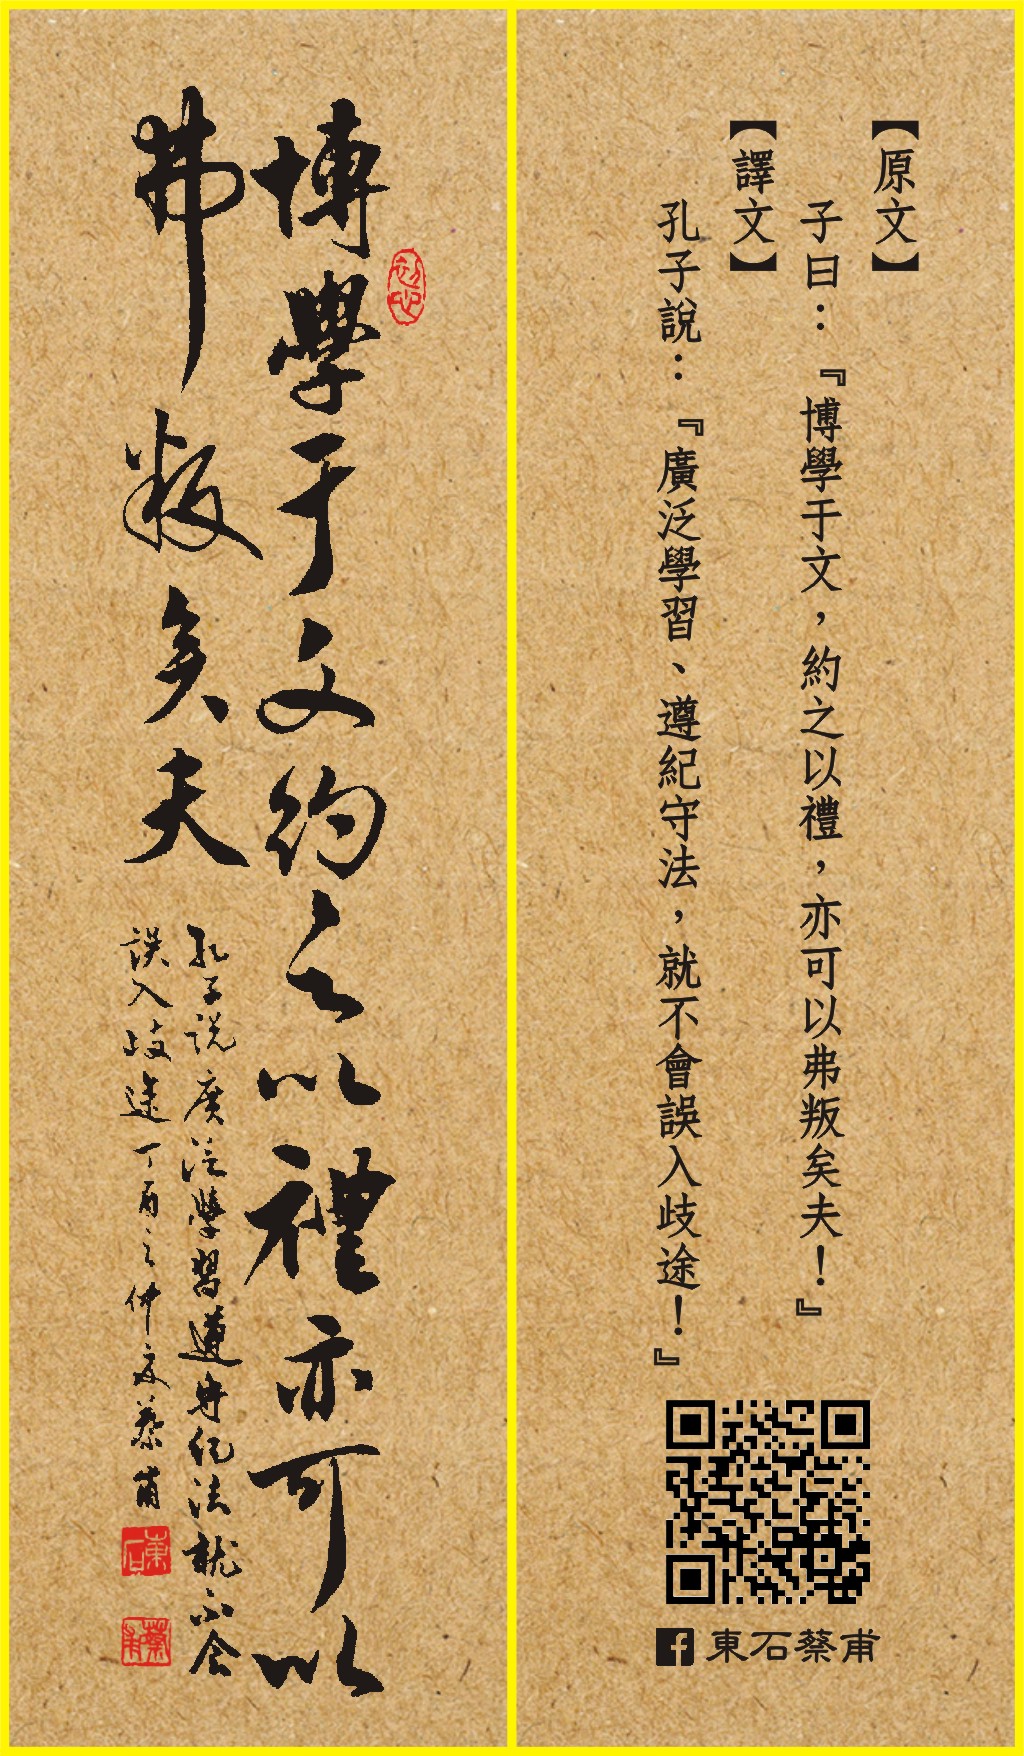 博學于文約之以禮亦可以
弗叛矣夫
孔子说廣泛學習遵守纪法就不会
誤入歧途丁酉之仲夏蔡甫
初心
東石
蔡甫
【原文】
子曰：『博學于文，約之以禮，亦可以弗叛矣夫！』
【譯文】
孔子說：『廣泛學習、遵紀守法，就不會誤入歧途！』
東石蔡甫